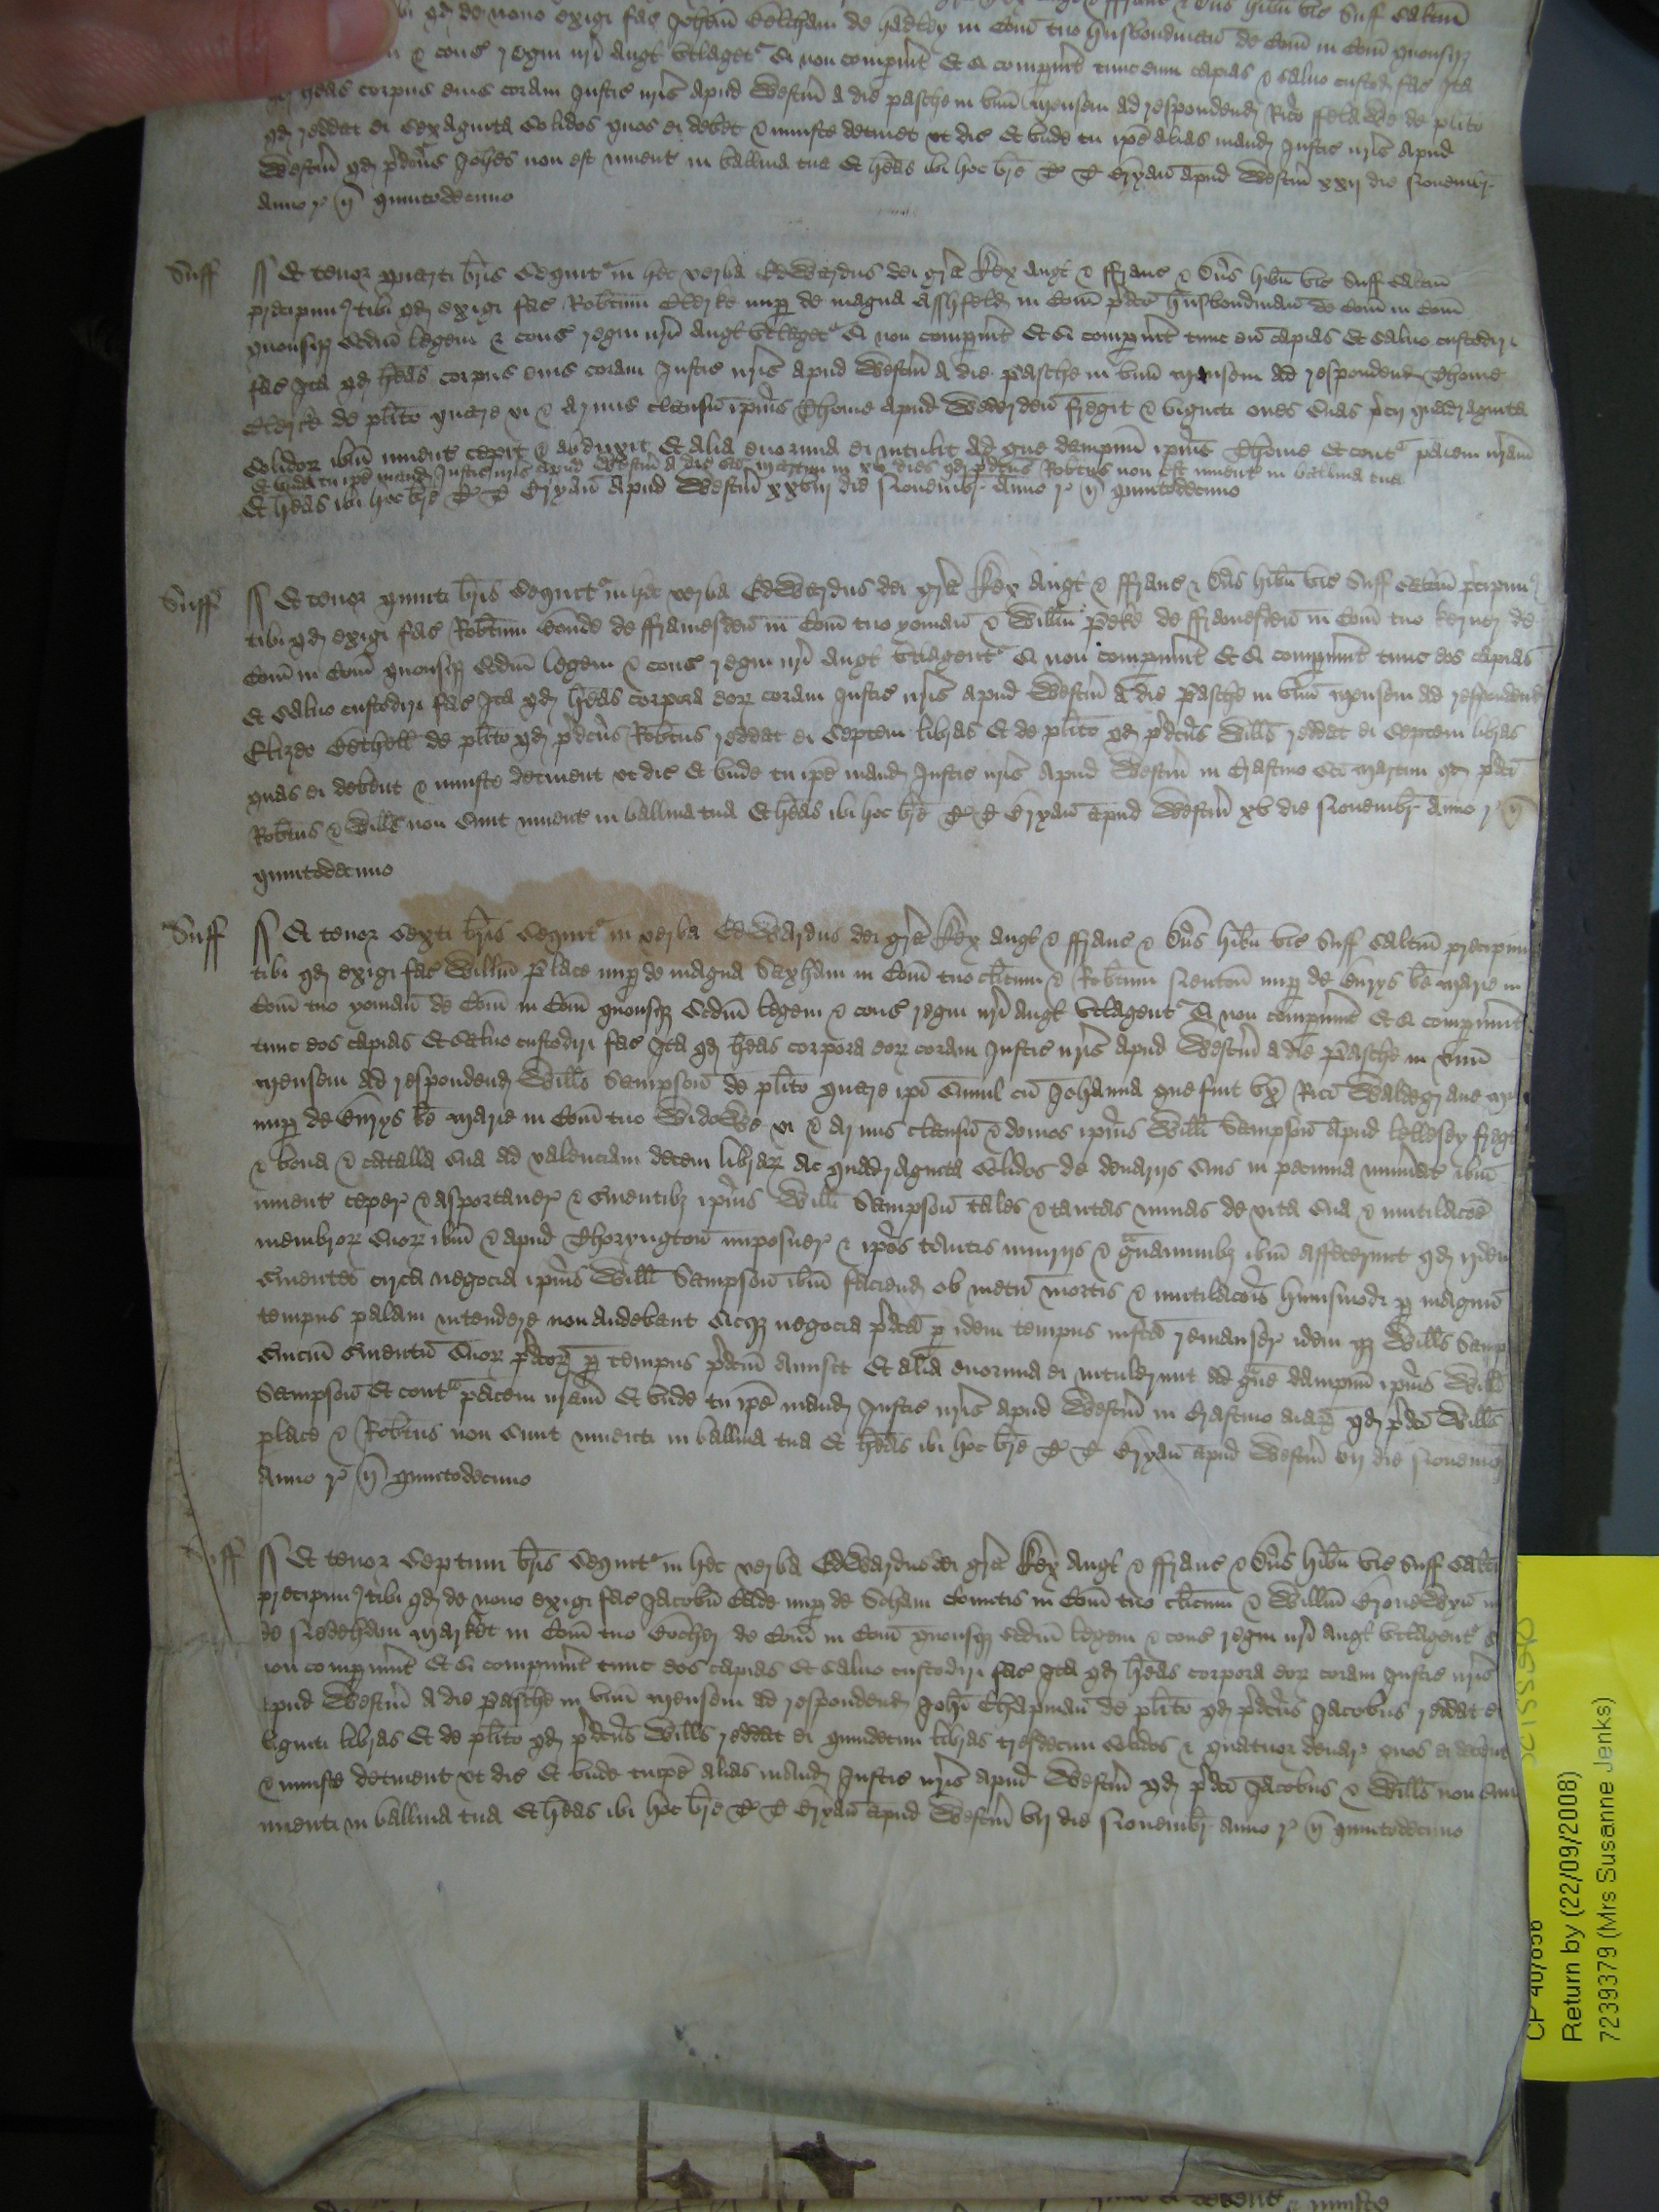 qd de novo exigi fac Johem de Hadley in Com tuo husbondman de Com in Com quousqz
& cons regni nri Angl utlaget Si non compuit Et si compuit tunc eum capias & salvo custod fac Ita
qd heas corpus eius coram Justic nris apud Westm a die pasche in unu mensem ad respondend Rico ffelawe de plito
qd reddat ei sexaginta solidos quos ei debet & iniuste detinet ut dic Et unde tu ipe alias mand Justic nris apud
Westm qd pdcus Johes non est invent in balliva tua Et heas ibi hoc bre T T Bryan apud Westm xxij die Novembr
Anno r n quintodecimo
Suff Et tenor quarti bris sequit in hec verba Edwardus dei gra Rex Angl & ffranc & Dns hibn vic Suff saltm
precipim tibi qd exigi fac Robtum Clerke nup de magna Asshfeld in Com pdco husbondman de Com in Com
quousqz scdm legem & cons regni nri Angl utlaget Si non compuit Et si compuit tunc eu capias Et salvo custodiri
fac Ita qd heas corpus eius coram Justic nris apud Westm a die pasche in unu mensem ad respondend Thome
Clerke de plito quare vi & armis clausu ipius Thome apud fregit & viginti oves suas pcij quadraginta
solidor ibm invent cepit & abduxit Et alia enormia ei intulit ad gve dampnu ipius Thome Et cont pacem nram
Et unde tu ipe mand Justic nris apud Westm a die sci Martini in xv dies qd pdcus Robtus non est invent in balliva tua
Et heas ibi hoc bre T T Bryan apud Westm xxviij die Novembr Anno r n quintodecimo
Suff Et tenor quinti bris sequit in hec verba Edwardus dei gra Rex Angl & ffranc & Dns hibn vic Suff saltm pcipim
tibi qd exigi fac Robtum de fframesden in Com tuo yoman & Willm Peke de fframesden in Com tuo de
Com in Com quousqz scdm legem & cons regni nri Angl utlagent Si non compuint Et si compuint tunc eos capias
Et salvo custodiri fac Ita qd heas corpora eor coram Justic nris apud Westm a die pasche in unu mensem ad respondend
de plito qd pdcus Robtus reddat ei septem libras Et de plito qd pdcus Wills reddat ei septem libras
quas ei debent & iniuste detinent ut dic Et unde tu ipe mand Justic nris apud Westm in Crastino sci Martini qd pdci
Robtus & Wills non sunt invent in balliva tua Et heas ibi hoc bre T T Bryan apud Westm xv die Novembr Anno r n
quintodecimo
Suff Et tenor sexti bris sequit in verba Edwardus dei gra Rex Angl & ffranc & Dns hibn vic Suff saltm precipim
tibi qd exigi fac Willm Place nup de magna Saxham in Com tuo clicum & Robtum nup de Burys be Marie in
Com tuo yoman de Com in Com quousqz scdm legem & cons regni nri Angl utlagent Si non compuint Et si compuint
tunc eos capias Et salvo custodiri fac Ita qd heas corpora eor coram Justic nris apud Westm a die pasche in unu
mensem ad respondend Willo Sampson de plito quare ipi simul cu Johanna que fuit ux Rici Waldegrave
nup de Burys be Marie in Com tuo Widowe vi & armis clausu & domos ipius Willi Sampson apud Kellesey freg
& bona & catalla sua ad valenciam decem librar ac quadraginta solidos de denarijs suis in pecunia numat ibm
invent ceper & asportaver & svientibz ipius Willi Sampson tales & tantas minas de vita sua & mutilacoe
membror suor ibm & apud Thoryngton imposuer & ipos tantis iniurijs & gvaminibz ibm affecerunt qd ijdem
svientes circa negocia ipius Willi Sampson ibm faciend ob metu mortis & mutilacois huiusmodi p magnu
tempus palam intendere non audebant sicqz negocia pdca p idem tempus infca remanser idem qz Wills Samp
svicium svientiu suor pdcor p tempus pdcm amisit Et alia enormia ei intulerunt ad gve dampnu ipius Willi
Sampson Et cont pacem nram Et unde tu ipe mand Justic nris apud Westm in Crastino aiar qd pdci Wills
place & Robtus non sunt inventi in balliva tua Et heas ibi hoc bre T T Bryan apud Westm vij die Novemb
Anno r n quintodecimo
Suff Et tenor septimi bris sequit in hec verba Edwardus dei gra Rex Angl & ffranc & Dns hibn vic Suff saltm
precipim tibi qd de novo exigi fac Jacobu nup de Soham Comitis in Com tuo clicum & Willm
de Nedeham Market in Com tuo Bocher de Com in Com quousqz scdm legem & cons regni nri Angl utlagent S
non compuint Et si compuint tunc eos capias Et salvo custodiri fac Ita qd heas corpora eor coram Justic nris
apud Westm a die pasche in unu mensem ad respondend Johi Chapman de plito qd pdcus Jacobus reddat ei
viginti libras Et de plito qd pdcus Wills reddat ei quindecim libras tresdecim solidos & quatuor denar quos ei debent
& iniuste detinent ut dic Et unde tu ipe alias mand Justic nris apud Westm qd pdci Jacobus & Wills non sunt
inventi in balliva tua Et heas ibi hoc bre T T Bryan apud Westm vij die Novembr Anno r n quintodecimo
CP 40/856
Return by (22/09/2008)
7239379 (Mrs Susanne Jenks)